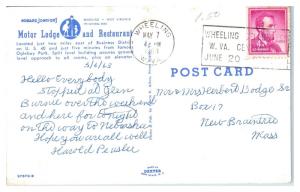 1.50
HOWARD JOHNSON'S
Motor Lodge and Restaurant
WHEELING • WEST VIRGINIA
Located just two miles east of Business District
on U. S. 40 and just five minutes from famous
Oglebay Park. Split level building assures ground
level approach to all rooms, plus an elevator.
5/6/63
Hello Everybody
Stopped at Glen
Burnie over the weekend
and here for tonight
on way to Nebraska
Hope you are all well
Harold
WHEELING
MAY 7
PM
W. VA.
WHEELING
W. VA.
JUNE 20
POST CARD
Mr & Mrs Herbert Dodge Sr
Box 17
New Braintree
Mass
DEXTER